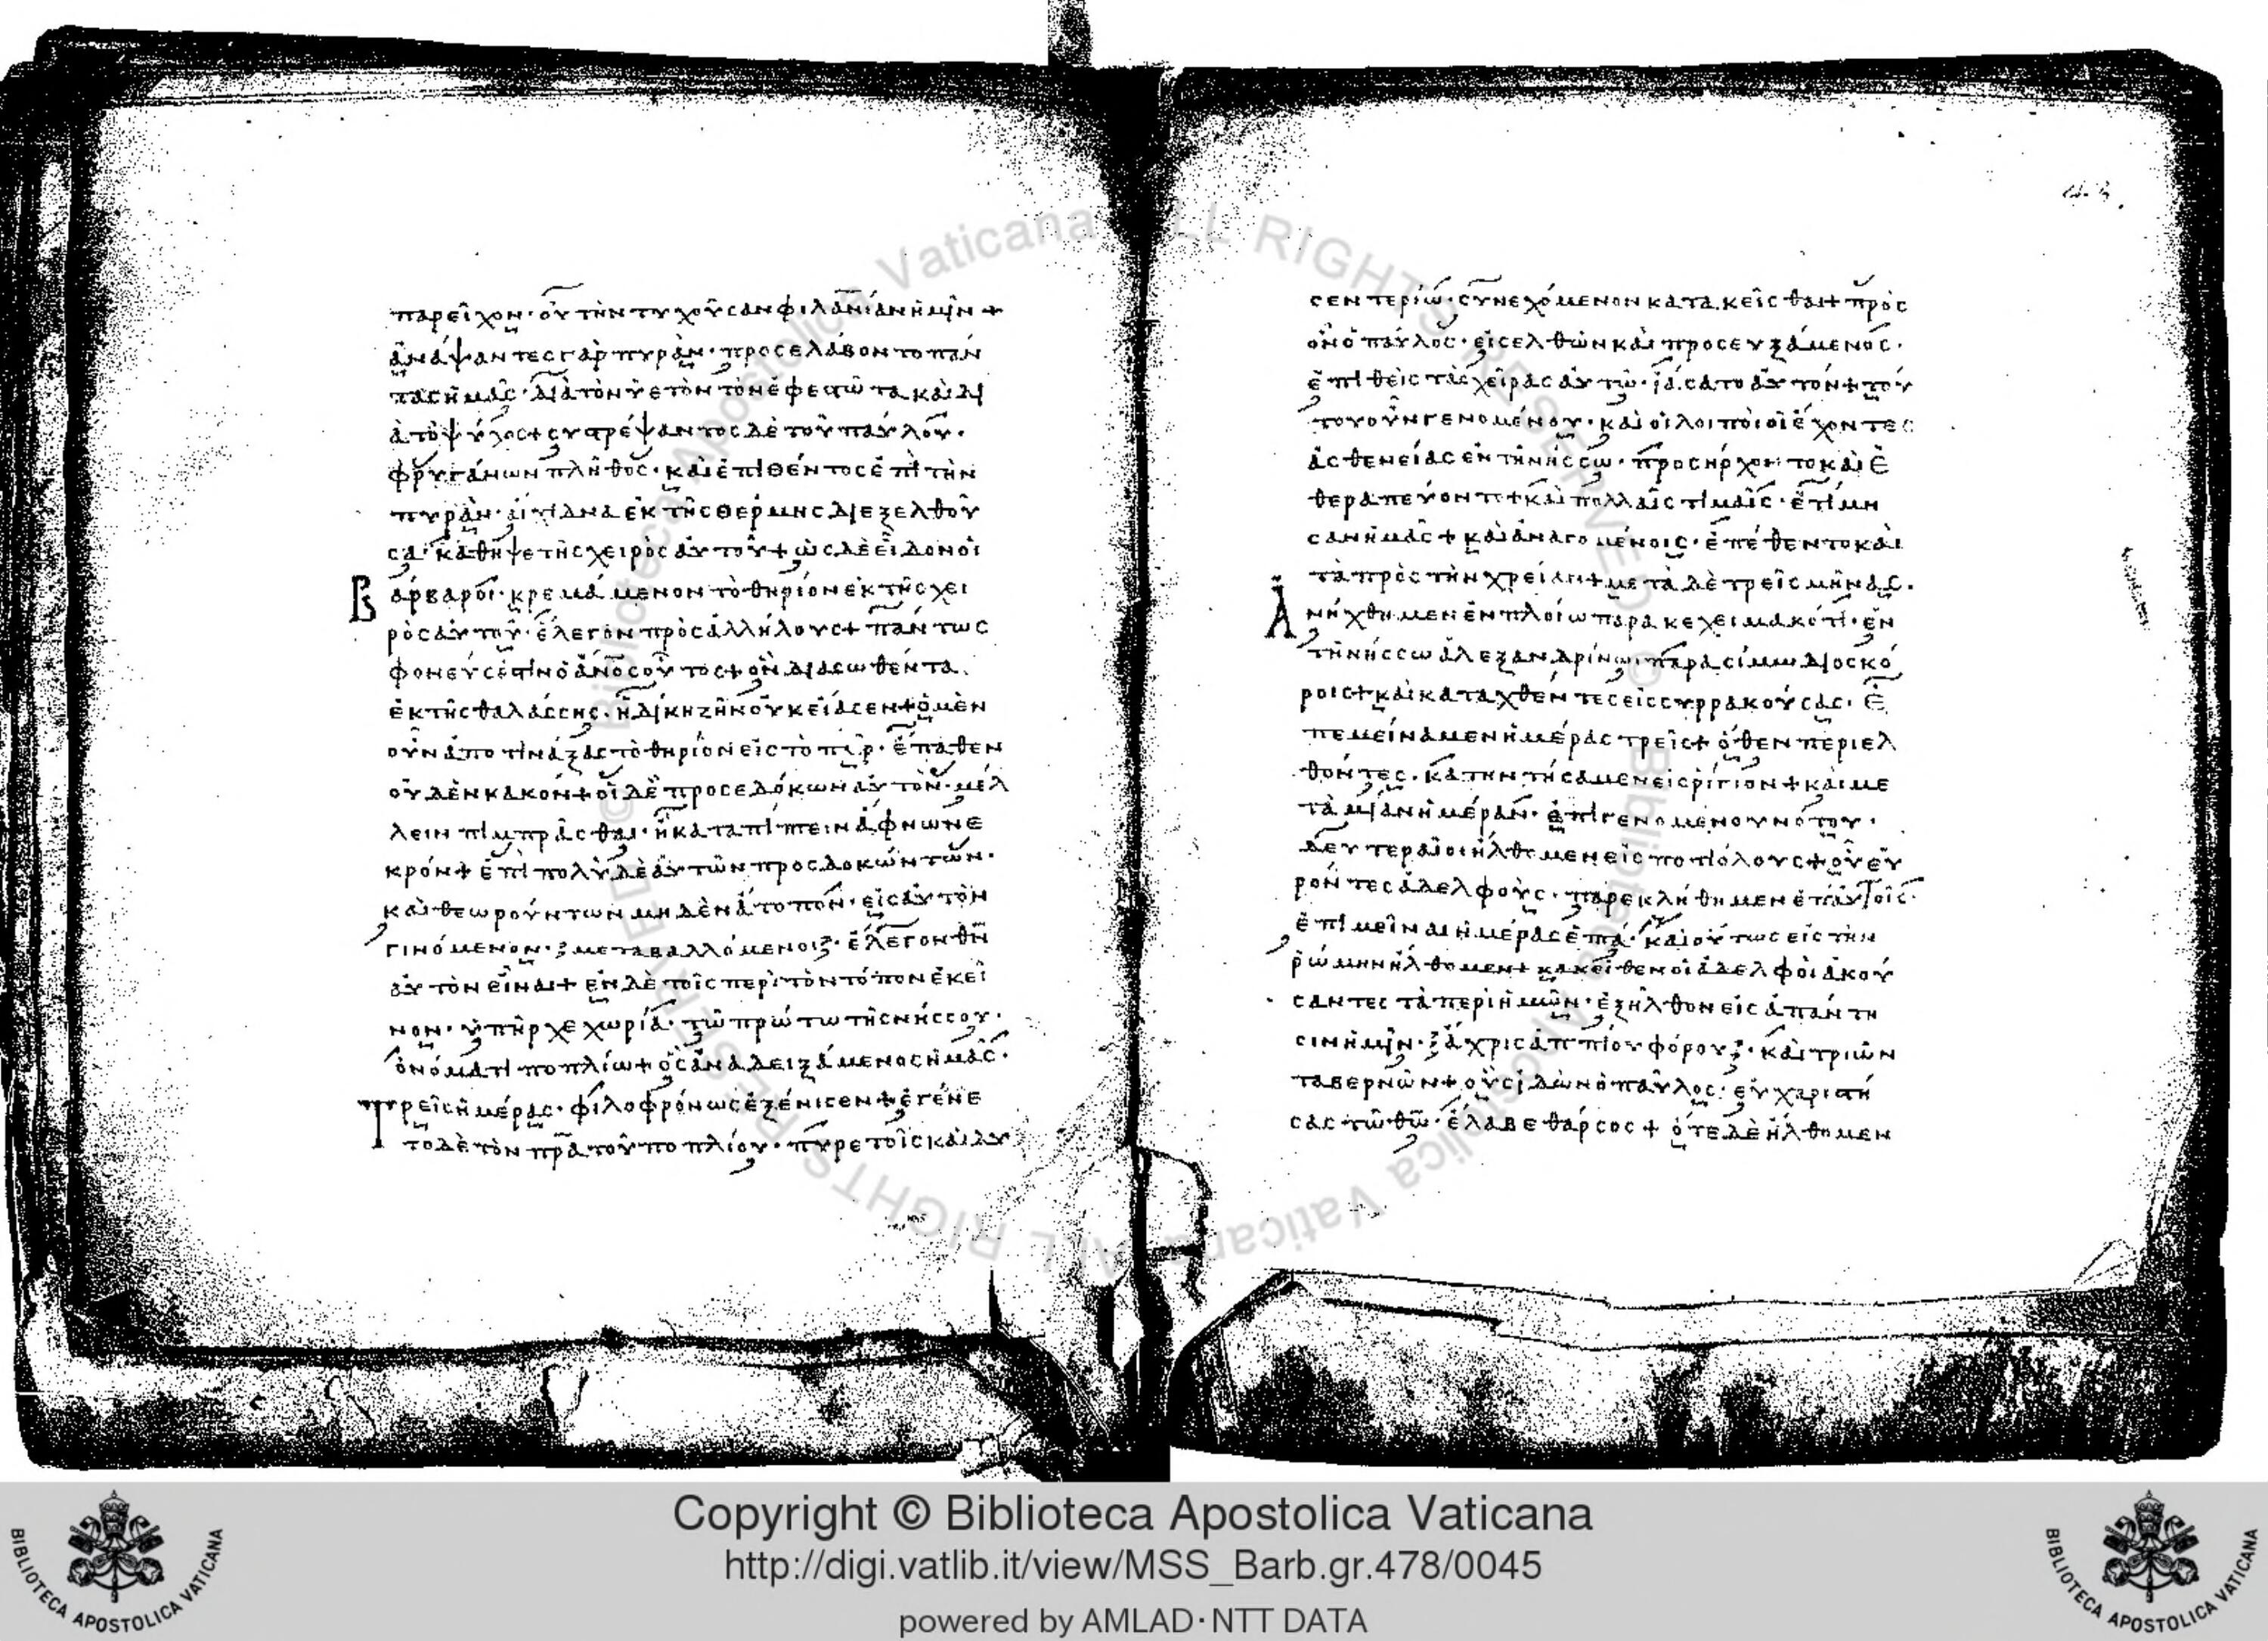 παρεῖχον· οὐ τὴν τυχοῦσαν φιλανίαν ἡμῖν +
ἀνάψαντες γὰρ πυρὰν· προσελάβοντο πάν
τας ἡμᾶς· διὰ τὸν ὑετὸν τὸν ἐφεστῶτα καὶ δι
ὰ τὸ ψύχος + συστρέψαντος δὲ τοῦ παύλου·
φρυγάνων πλῆθος· καὶ ἐπιθέντος ἐπὶ τὴν
πυρὰν· ἔχιδνα ἐκ τῆς θέρμης διεξελθοῦ
σα· καθῆψε τῆς χειρὸς αὐτοῦ + ὡς δὲ εἶδον οἱ
βάρβαροι· κρεμάμενον τὸ θηρίον ἐκ τῆς χει
ρὸς αὐτοῦ· ἔλεγον πρὸς ἀλλήλους + πάντως
φονεύς ἐστιν ὁ ἄνος οὗτος + ὃν διασωθέντα
ἐκ τῆς θαλάσσης· ἡ δίκη ζῆν οὐκ εἴασεν + ὁ μὲν
οὖν ἀποτινάξας τὸ θηρίον εἰς τὸ πῦρ· ἔπαθεν
οὐδὲν κακόν + οἱ δὲ προσεδόκων αὐτὸν· μέλ
λειν πίμπρασθαι· ἢ καταπίπτειν ἄφνω νε
κρόν + ἐπὶ πολὺ δὲ αὐτῶν προσδοκώντων·
καὶ θεωρούντων μηδὲν ἄτοπον· εἰς αὐτὸν
γινόμενον· μεταβαλλόμενοι· ἔλεγον θν
αὐτὸν εἶναι + ἐν δὲ τοῖς περὶ τὸν τόπον ἐκεῖ
νον· ὑπῆρχε χωρία· τῶ πρώτω τῆς νήσσου·
ὀνόματι ποπλίω + ὃς ἀναδειξάμενος ἡμᾶς·
τρεῖς ἡμέρας· φιλοφρόνως ἐξένισεν + ἐγένε
το δὲ τὸν πρα τοῦ ποπλίου· πυρετοῖς καὶ δυ
43.
σεντερίω· συνεχόμενον κατακεῖσθαι + πρὸς
ὃν ὁ παύλος· εἰσελθὼν καὶ προσευξάμενος·
ἐπιθεὶς τὰς χεῖρας αὐτῶ· ἰάσατο αὐτόν + τού
του οὖν γενομένου· καὶ οἱ λοιποὶ οἱ ἔχοντες
ἀσθενείας ἐν τῆ νήσσω· προσήρχοντο καὶ ἐ
θεραπεύοντο + καὶ πολλαῖς τιμαῖς· ἐτίμη
σαν ἡμᾶς + καὶ ἀναγομένοις· ἐπέθεντο καὶ
τὰ πρὸς τὴν χρείαν + μετὰ δὲ τρεῖς μῆνας·
ἀνήχθημεν ἐν πλοίω παρακεχειμακότι· ἐν
τῆ νήσσω ἀλεξανδρίνω· παρασίμω διοσκό
ροις + καὶ καταχθέντες εἰς συρρακούσας· ἐ
πεμείναμεν ἡμέρας τρεῖς + ὅθεν περιελ
θόντες· κατηντήσαμεν εἰς ρίγιον + καὶ με
τὰ μίαν ἡμέραν· ἐπιγενομένου νότου·
δευτεραῖοι ἤλθομεν εἰς ποτιόλους + οὗ εὑ
ρόντες ἀδελφοὺς· παρεκλήθημεν ἐπ' αὐτοῖς·
ἐπιμεῖναι ἡμέρας ἑπτά· καὶ οὕτως εἰς τὴν
ρώμην ἤλθομεν + κακεῖθεν οἱ ἀδελφοὶ ἀκού
σαντες τὰ περὶ ἡμῶν· ἐξῆλθον εἰς ἀπάντη
σιν ἡμῖν· ἄχρις ἀππίου φόρου· καὶ τριῶν
ταβερνῶν + οὓς ἰδὼν ὁ παῦλος· εὐχαριστή
σας τῶ θω· ἔλαβε θάρσος + ὅτε δὲ ἤλθομεν
Copyright © Biblioteca Apostolica Vaticana
http://digi.vatlib.it/view/MSS_Barb.gr.478/0045
powered by AMLAD·NTT DATA
BIBLIOTECA APOSTOLICA VATICANA
BIBLIOTECA APOSTOLICA VATICANA